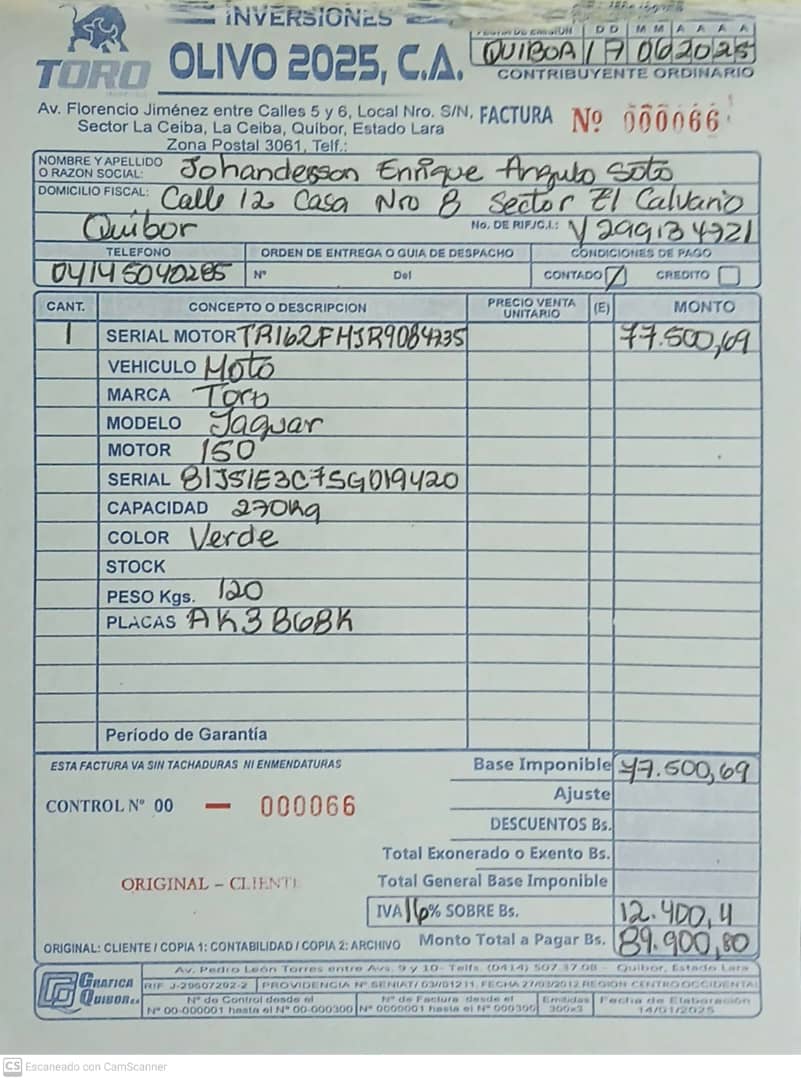 INVERSIONES
TORO OLIVO 2025, C.A.
FECHA DE EMISION D D M M A A A A
QUIBOR 17 06 2025
CONTRIBUYENTE ORDINARIO
Av. Florencio Jiménez entre Calles 5 y 6, Local Nro. S/N,
Sector La Ceiba, La Ceiba, Quibor, Estado Lara
Zona Postal 3061, Telf.:
FACTURA Nº 000066
NOMBRE Y APELLIDO O RAZON SOCIAL: Johandesson Enrique Angulo Soto
DOMICILIO FISCAL: Calle 12 Casa Nro 8 Sector El Calvario
Quibor No. DE RIF/C.I.: V 299134721
TELEFONO ORDEN DE ENTREGA O GUIA DE DESPACHO CONDICIONES DE PAGO
04145040285 Nº Del CONTADO CREDITO
CANT. CONCEPTO O DESCRIPCION PRECIO VENTA UNITARIO (E) MONTO
1 SERIAL MOTOR TR162FMJR9084735 77.500,69
VEHICULO Moto
MARCA Toro
MODELO Jaguar
MOTOR 150
SERIAL 81JS1E3C7SG019420
CAPACIDAD 270Kg
COLOR Verde
STOCK
PESO Kgs. 120
PLACAS AK3B68K
Período de Garantía
ESTA FACTURA VA SIN TACHADURAS NI ENMENDATURAS Base Imponible 77.500,69
Ajuste
CONTROL Nº 00 — 000066
DESCUENTOS Bs.
Total Exonerado o Exento Bs.
ORIGINAL – CLIENTE Total General Base Imponible
IVA 16% SOBRE Bs. 12.400,4
ORIGINAL: CLIENTE / COPIA 1: CONTABILIDAD / COPIA 2: ARCHIVO Monto Total a Pagar Bs. 89.900,80
GRAFICA QUIBOR C.A.
Av. Pedro León Torres entre Avs. 9 y 10- Telfs. (0414) 507 37 08 - Quibor, Estado Lara
RIF J-29607292-2 PROVIDENCIA Nº SENIAT/ 03/01211, FECHA 27/03/2012 REGION CENTRO OCCIDENTAL
Nº de Control desde el Nº de Factura desde el Emitidas Fecha de Elaboración
Nº 00-000001 hasta el Nº 00-000300 Nº 0000001 hasta el Nº 000300 300x3 14/01/2025
CS Escaneado con CamScanner